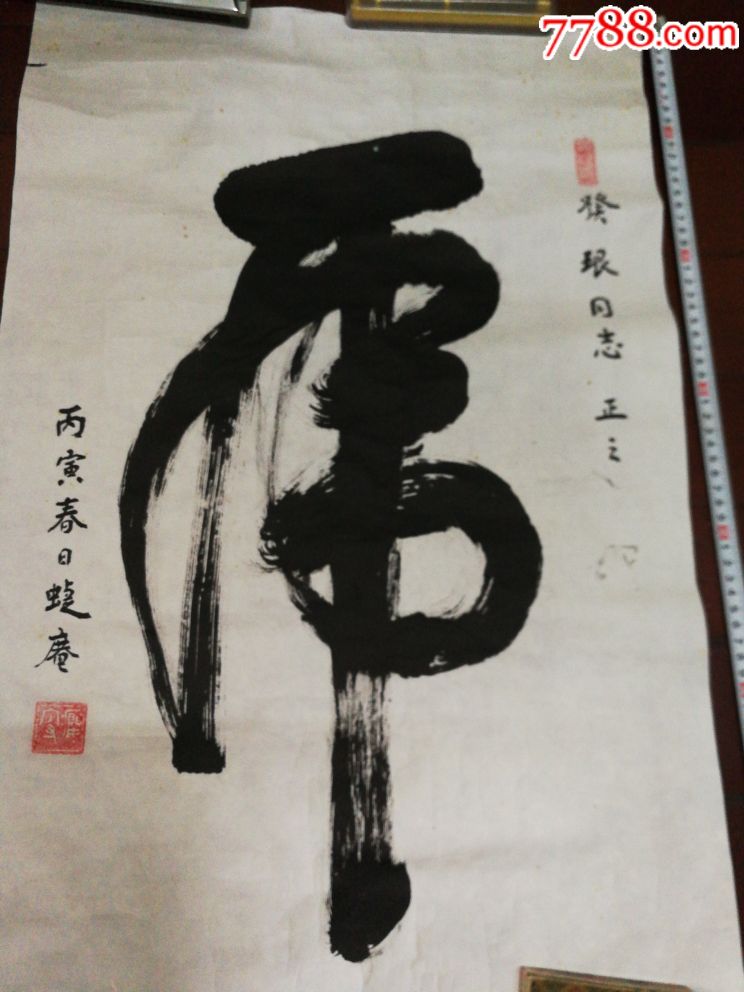 7788.com
癸珉同志 正之
虎
丙寅春日
庵